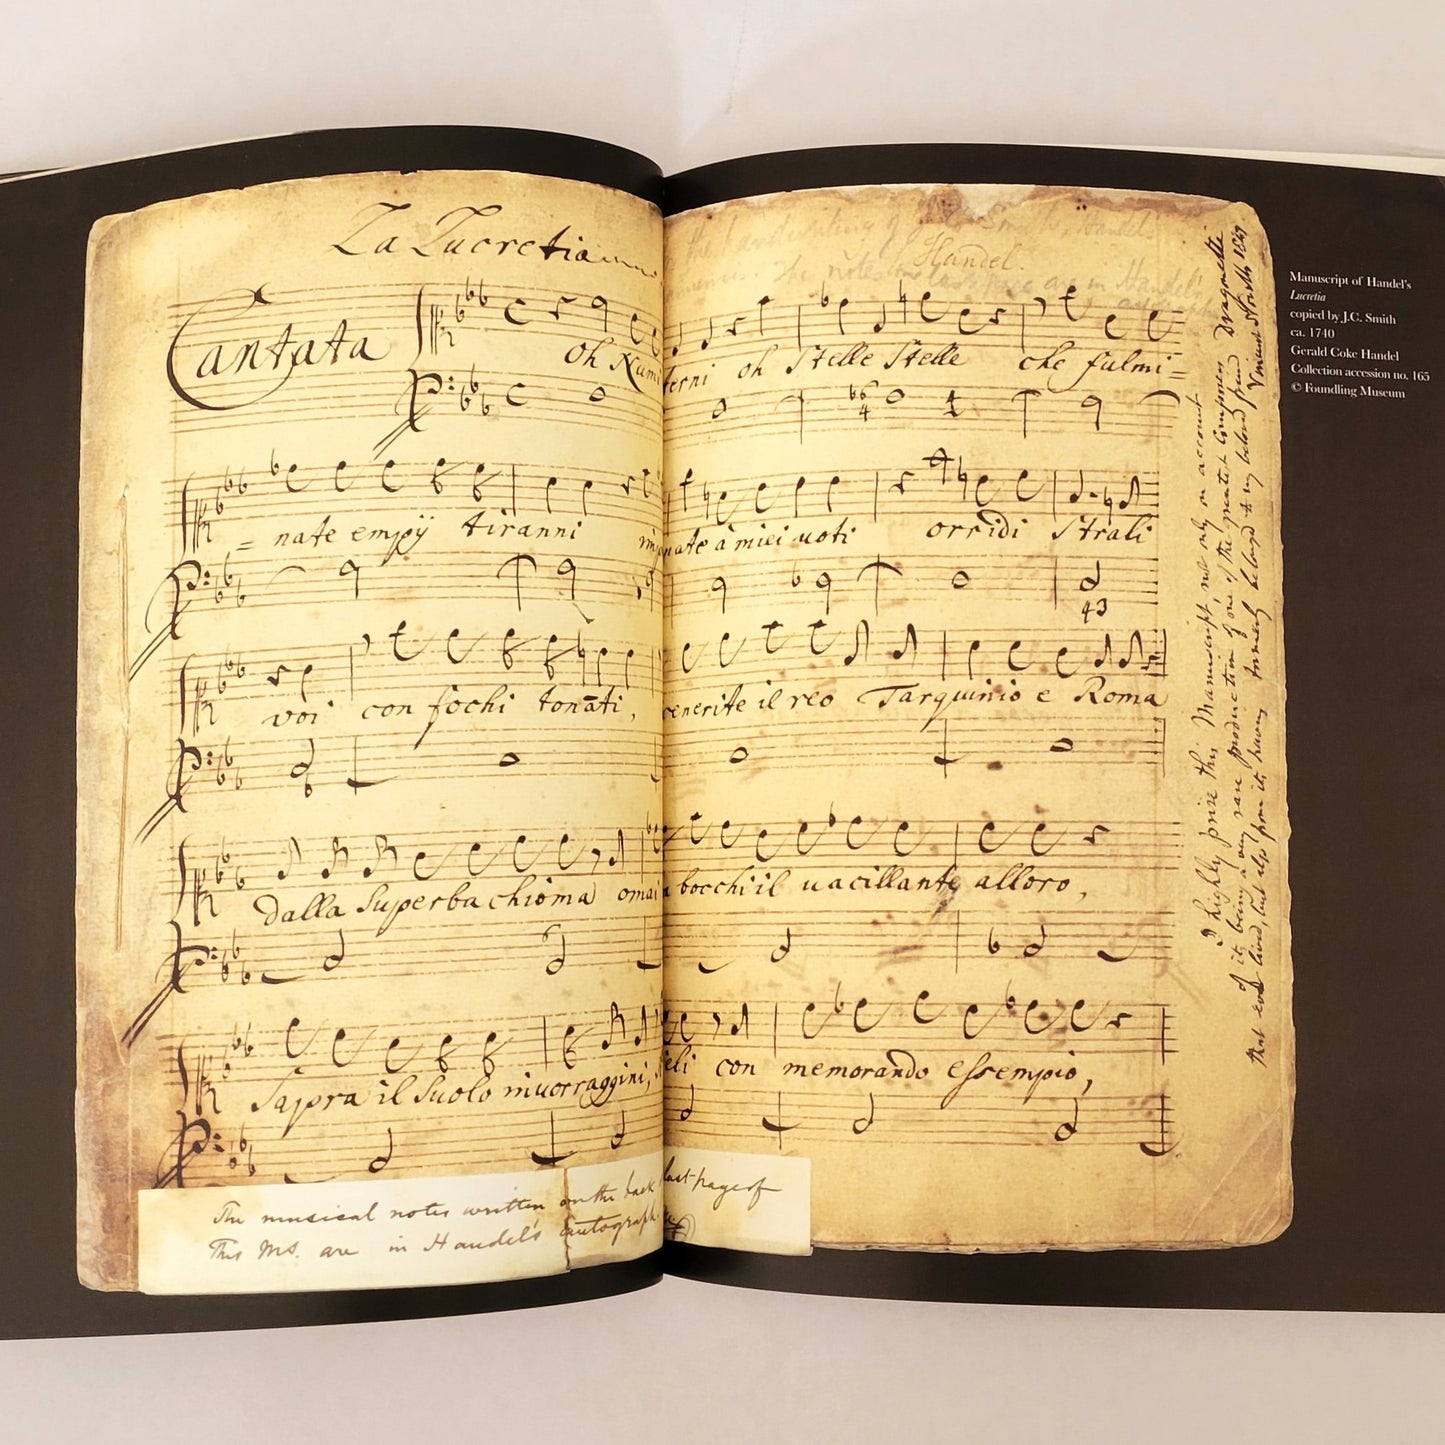 La Lucretia
the handwriting of Smith, Handel's
Handel.
The notes on last page are in Handel's
Cantata
oh Numi terni oh Stelle Stelle che fulmi=
b6
4
=nate empÿ tiranni nate à miei voti orridi Strali
43
voi con fochi tonāti, cenerite il reo Tarquinio e Roma
dalla Superba chioma omai bocchi il vacillante alloro,
Sapra il Suolo in vorraggini, eli con memorando essempio,
The musical notes written on the back last page of
This MS. are in Handel's autograph
I highly prize this Manuscript, not only on account
of its being a very rare production of one of the greatest Composers
that ever lived, but also from its having formerly belonged to my beloved friend Dragonetti
Vincent Novello 1849
Manuscript of Handel's
Lucretia
copied by J.C. Smith
ca. 1740
Gerald Coke Handel
Collection accession no. 165
© Foundling Museum